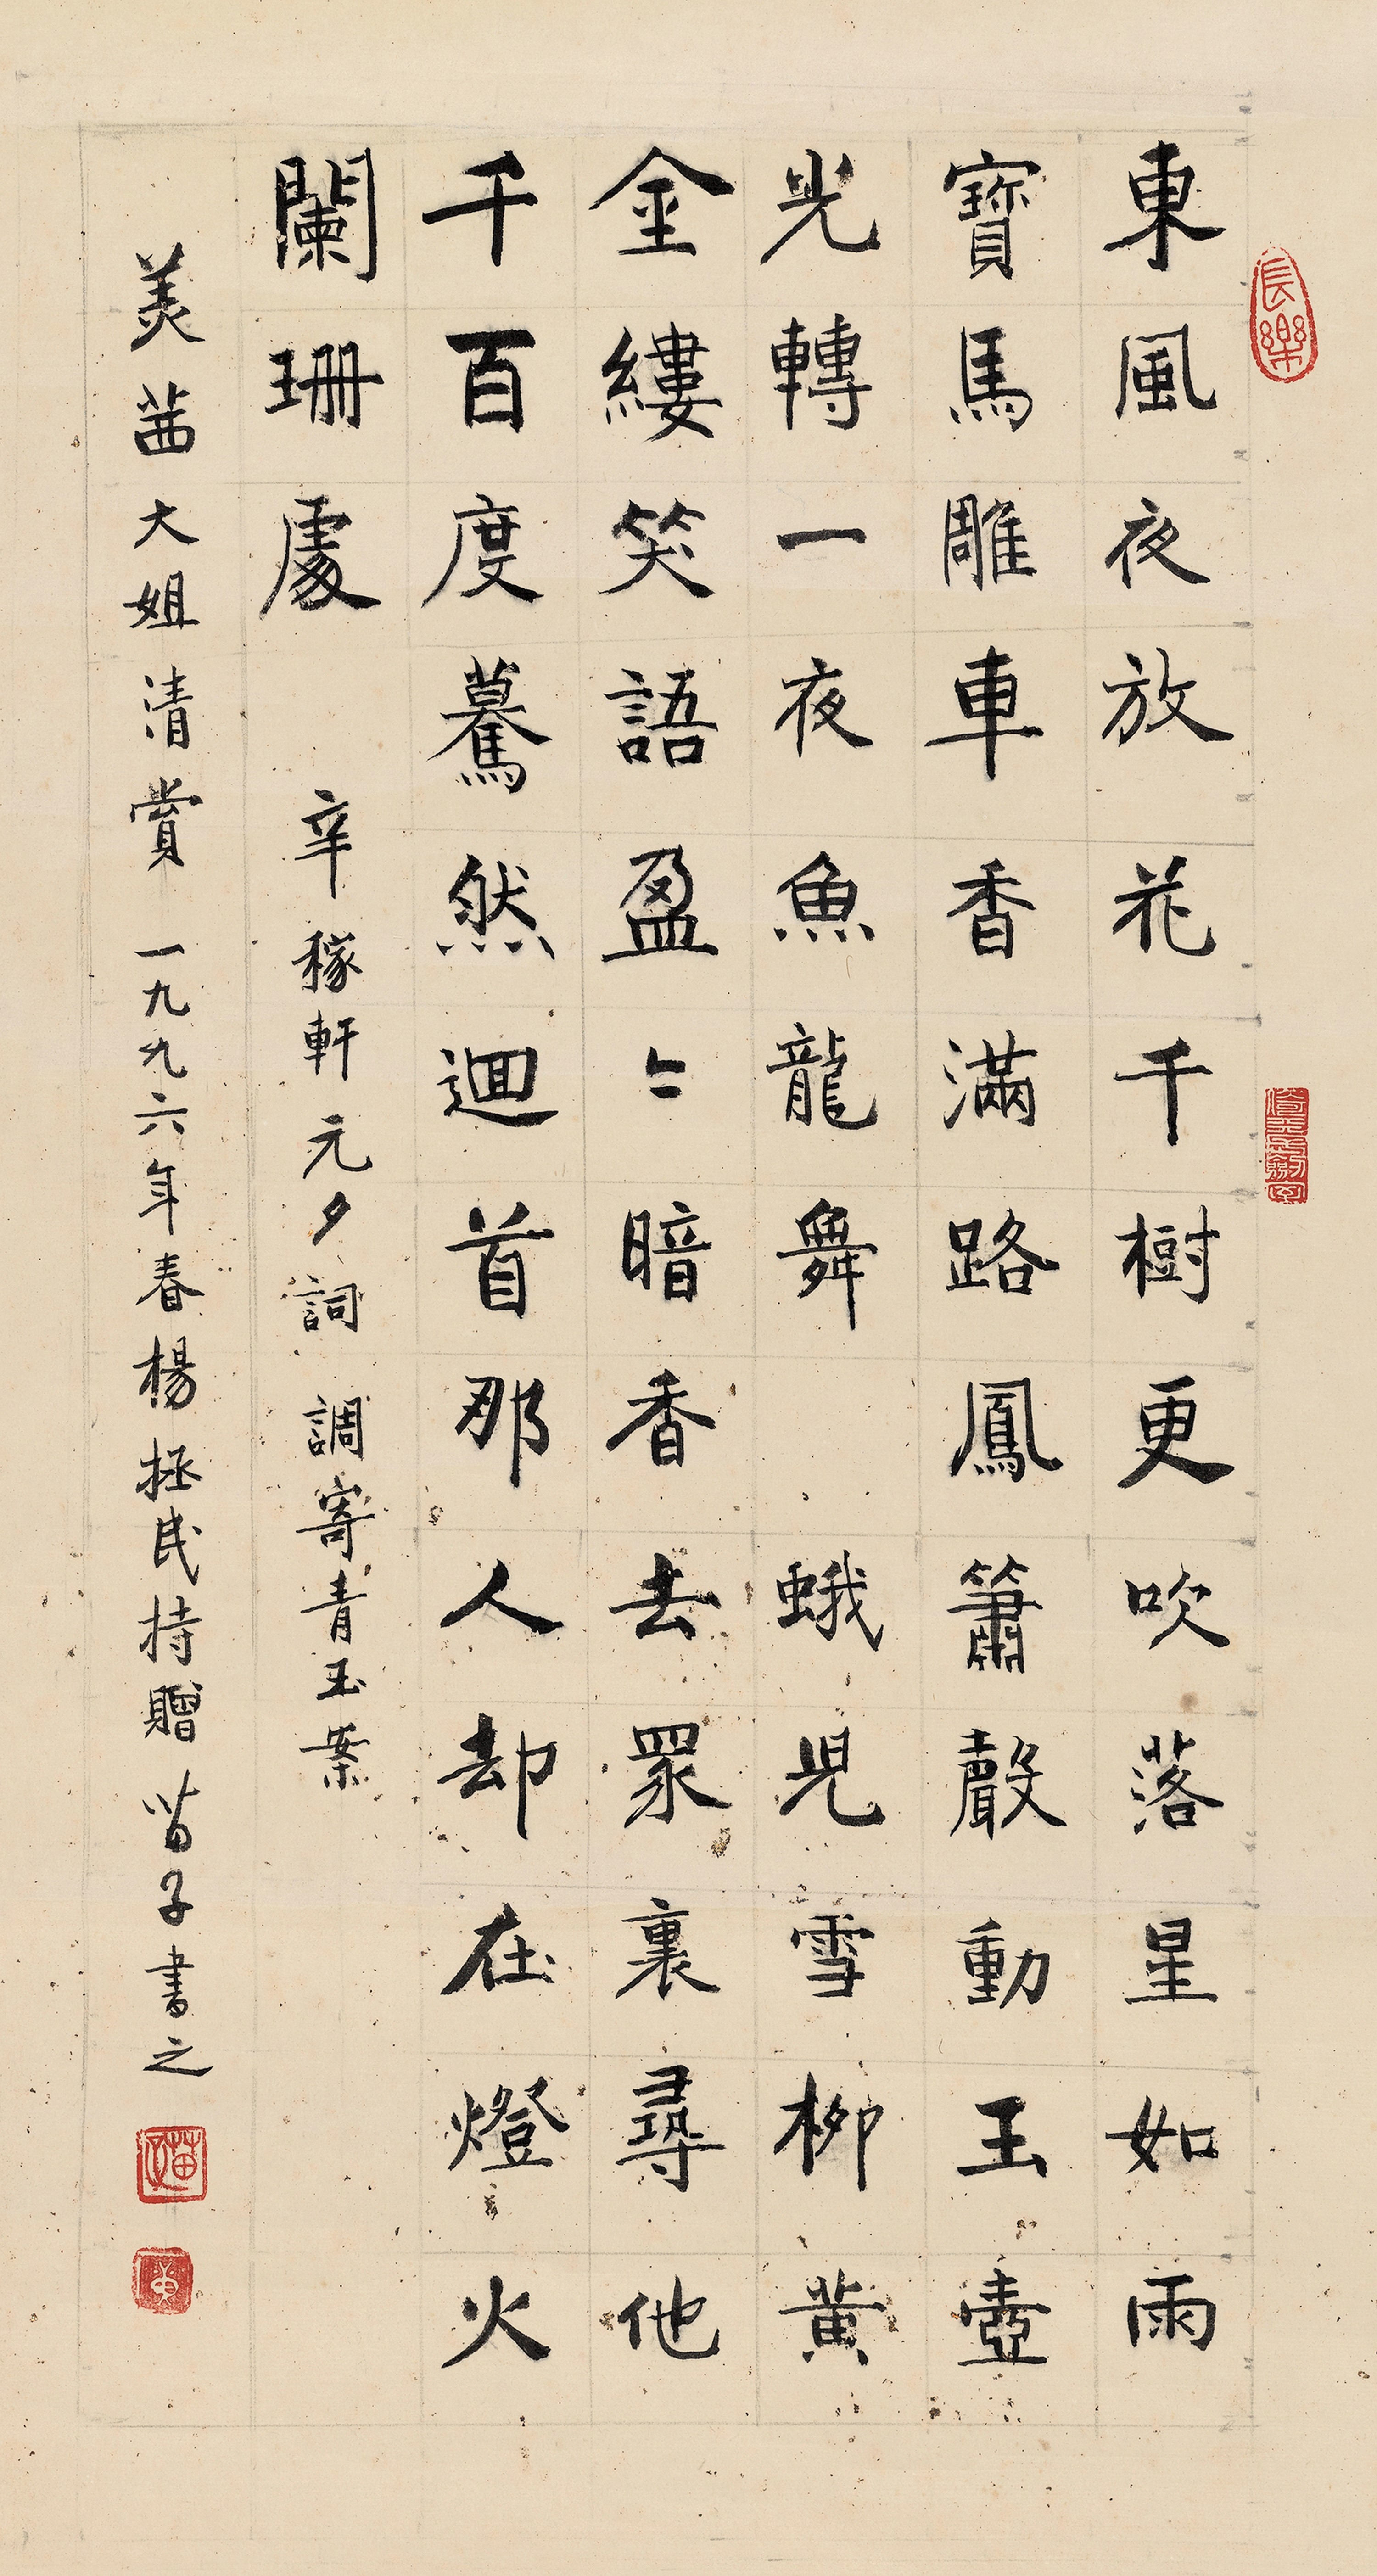 東風夜放花千樹更吹落星如雨
寶馬雕車香滿路鳳簫聲動玉壺
光轉一夜魚龍舞 蛾兒雪柳黃
金縷笑語盈〻暗香去眾裏尋他
千百度驀然迴首那人却在燈火
闌珊處 辛稼軒元夕詞 調寄青玉案
美茜大姐清賞 一九九六年春楊拯民持贈 苗子書之
長樂
苗